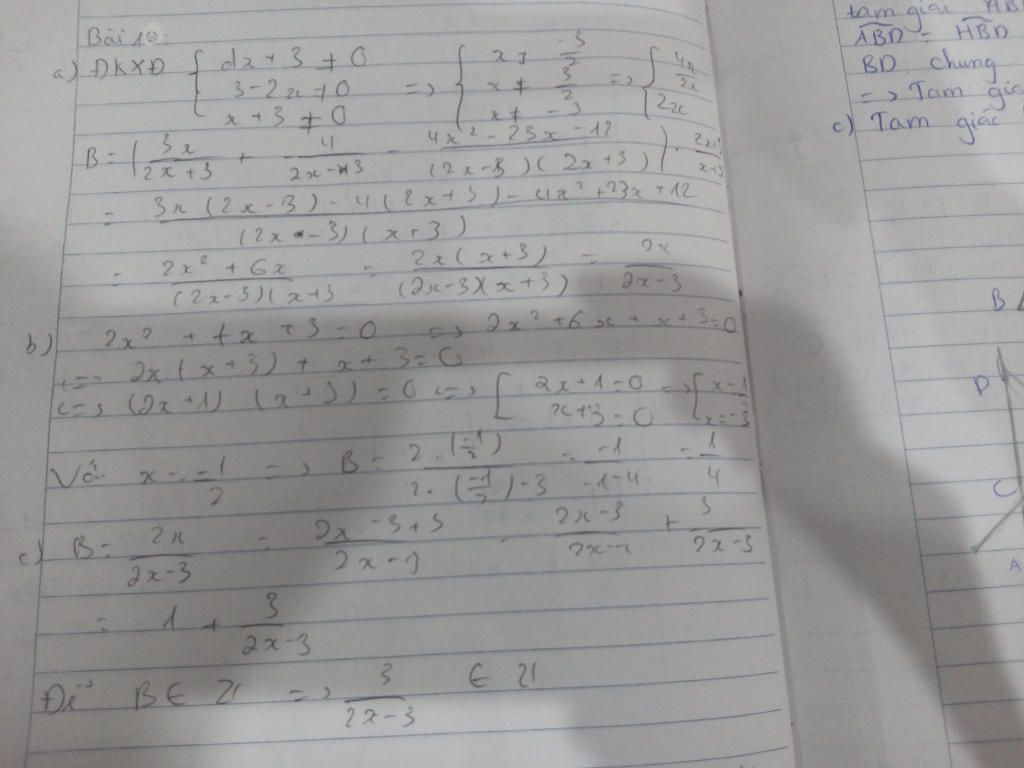 Bài 10:
a) ĐKXĐ { 2x + 3 ≠ 0 => { x ≠ -3/2 => { 4x/2x
3 - 2x ≠ 0 x ≠ 3/2 2x
x + 3 ≠ 0 x ≠ -3
B = ( 3x/(2x+3) + 4/(2x-3) - (4x² - 23x - 12)/((2x-3)(2x+3)) ) .
= (3x(2x-3) - 4(2x+3) - 4x² + 23x + 12)/((2x-3)(x+3))
= (2x² + 6x)/((2x-3)(x+3 = 2x(x+3)/((2x-3)(x+3)) = 2x/(2x-3)
b) 2x² + 7x + 3 = 0 <=> 2x² + 6x + x + 3 = 0
<=> 2x(x+3) + x + 3 = 0
<=> (2x+1) (x+3) = 0 <=> [ 2x + 1 = 0 => [ x = -1
x + 3 = 0 x = -3
Với x = -1/2 => B = 2.(-1/2)/(2.(-1/2) - 3) = -1/(-1-4) = 1/4
c) B = 2x/(2x-3) = (2x - 3 + 3)/(2x-3) = (2x-3)/ + 3/(2x-3)
= 1 + 3/(2x-3)
Để B ∈ Z => 3/(2x-3) ∈ Z
tam giác AB
ABD = HBD
BD chung
=> Tam giá
c) Tam giác
B
D
C
A